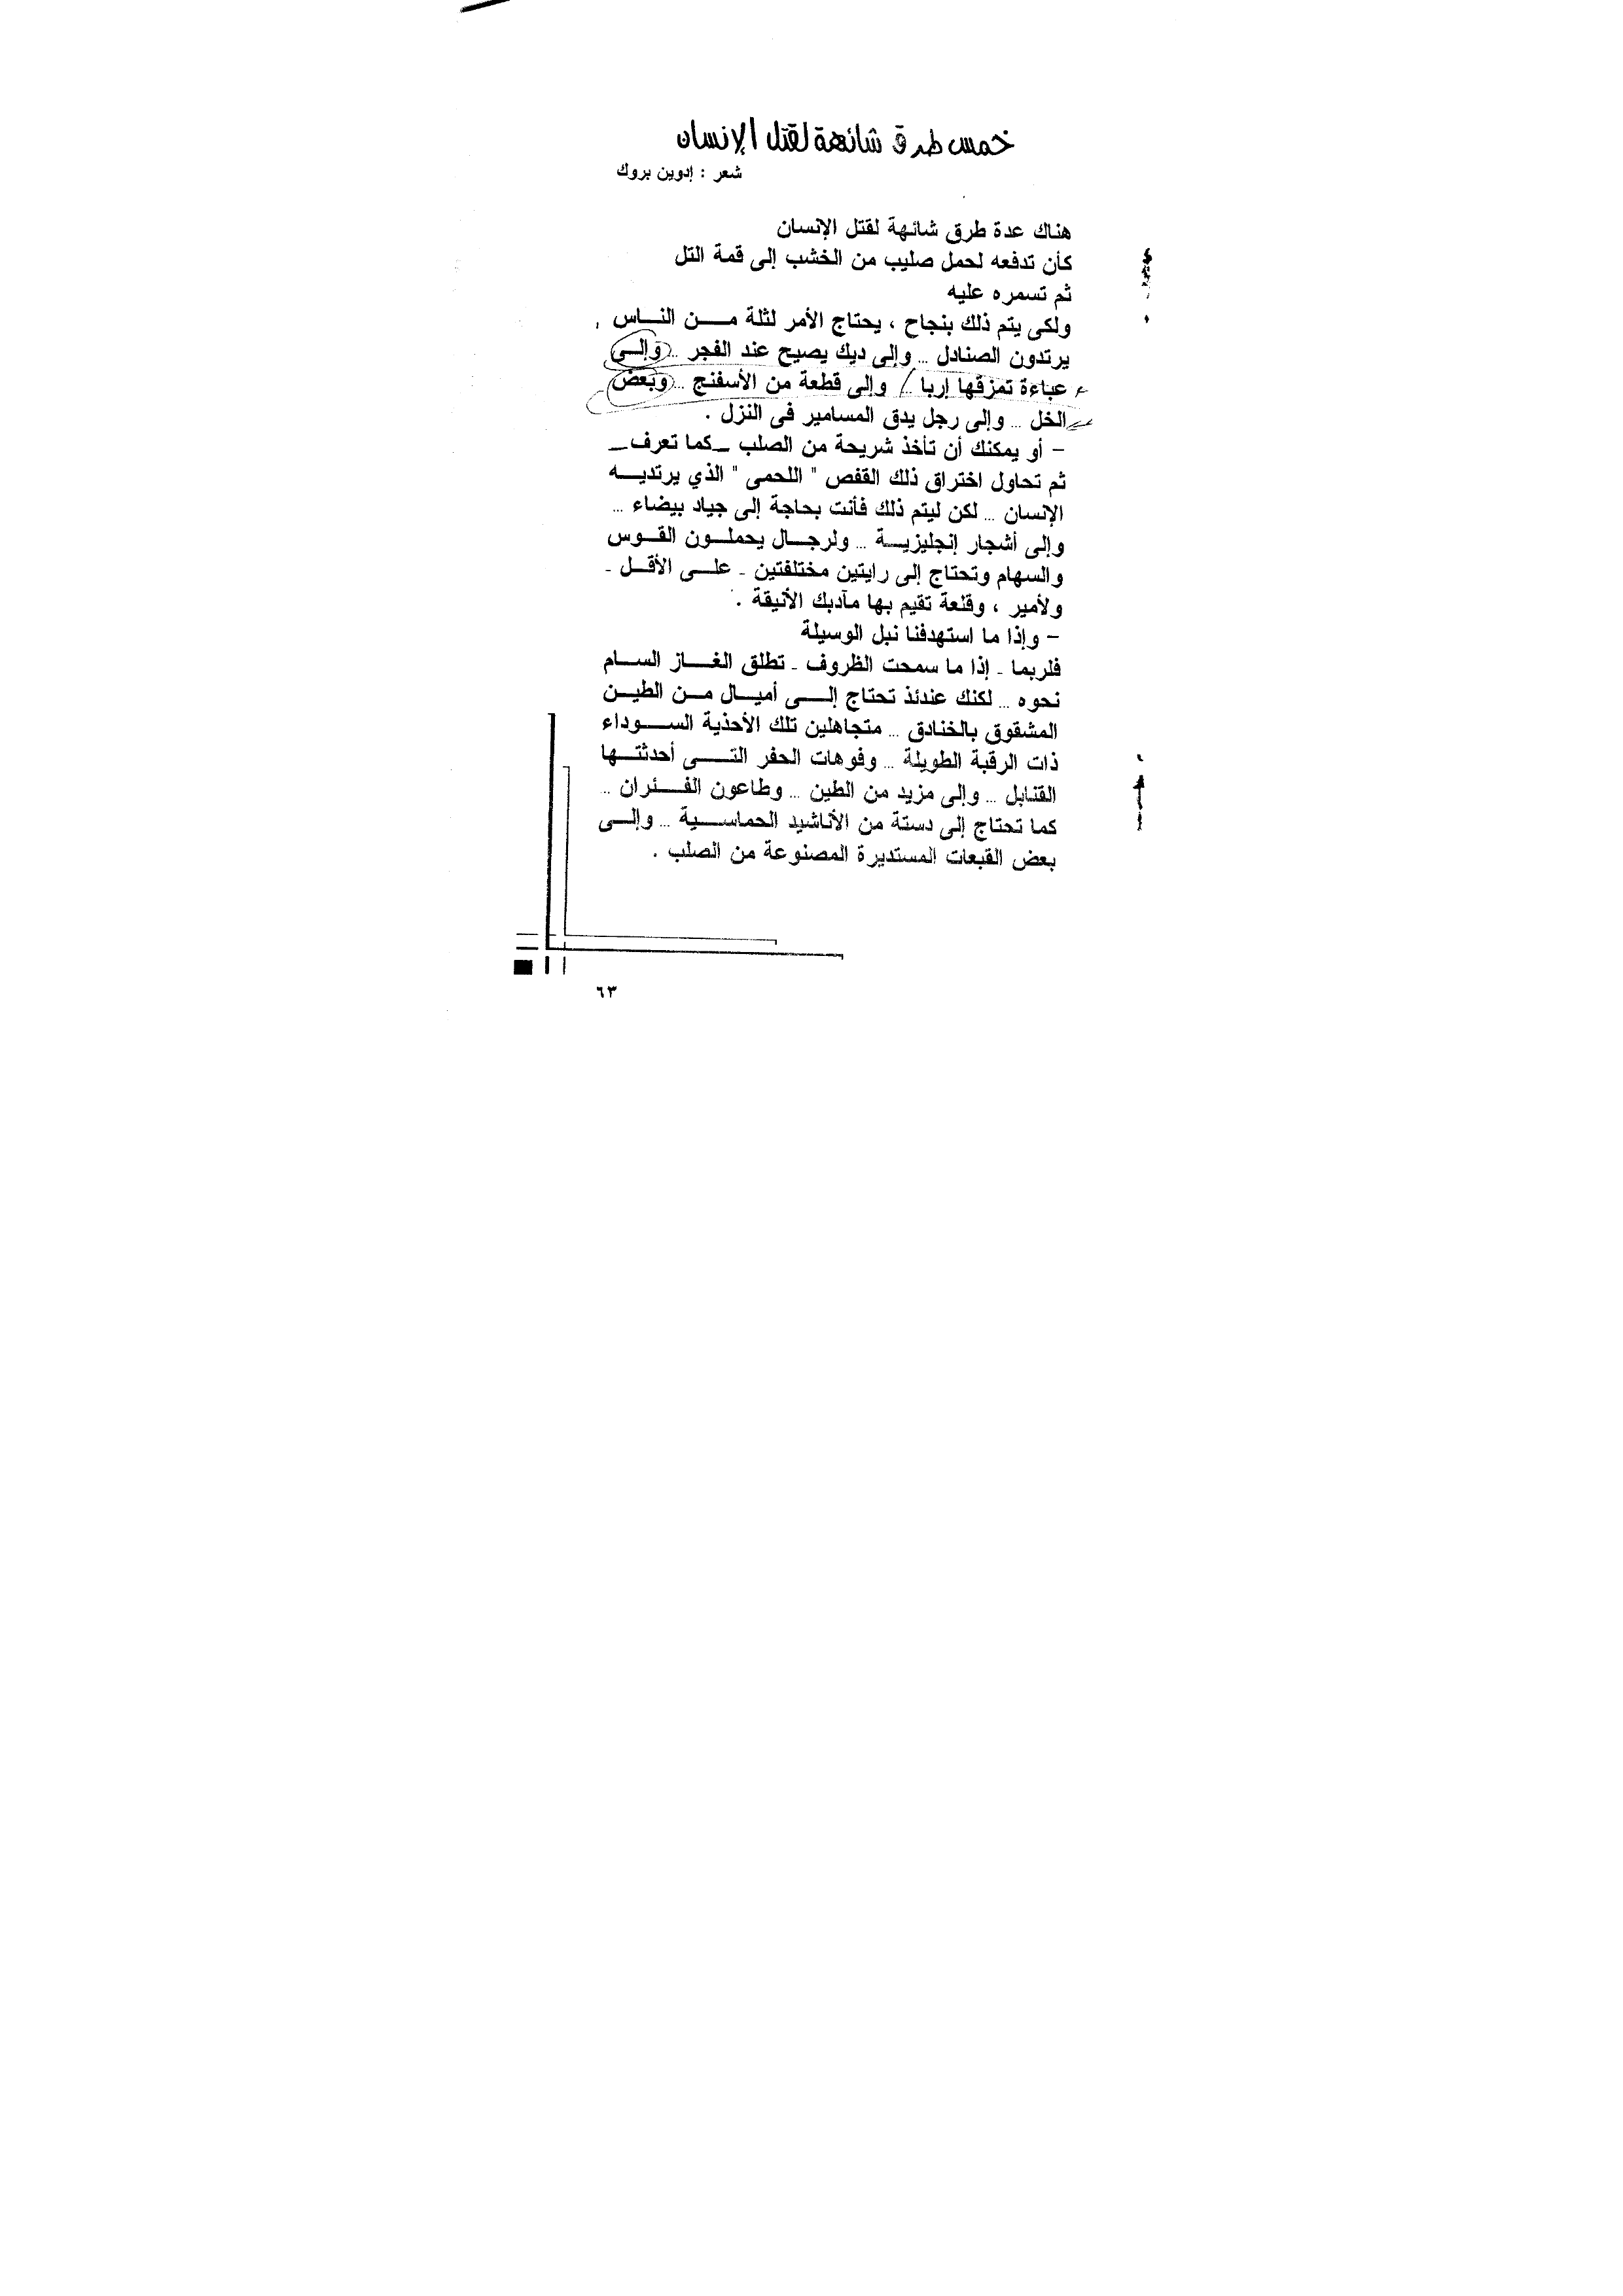 خمس طرق شائهة لقتل الإنسان
شعر : إدوين بروك
هناك عدة طرق شائهة لقتل الإنسان
كأن تدفعه لحمل صليب من الخشب إلى قمة التل
ثم تسمره عليه
ولكى يتم ذلك بنجاح ، يحتاج الأمر لثلة مـــن النــاس
يرتدون الصنادل ... وإلى ديك يصيح عند الفجر ... وإلــى
عباءة تمزقها إربا ... وإلى قطعة من الأسفنج ... وبعض
الخل ... وإلى رجل يدق المسامير فى النزل .
– أو يمكنك أن تأخذ شريحة من الصلب ــ كما تعرف ــ
ثم تحاول اختراق ذلك القفص " اللحمى " الذي يرتديــه
الإنسان ... لكن ليتم ذلك فأنت بحاجة إلى جياد بيضاء ...
وإلى أشجار إنجليزيــة ... ولرجــال يحملــون القــوس
والسهام وتحتاج إلى رايتين مختلفتين ـ علــى الأقــل ـ
ولأمير ، وقلعة تقيم بها مآدبك الأنيقة .
– وإذا ما استهدفنا نبل الوسيلة
فلربما ـ إذا ما سمحت الظروف ـ تطلق الغــاز الســام
نحوه ... لكنك عندئذ تحتاج إلــى أميــال مــن الطيــن
المشقوق بالخنادق ... متجاهلين تلك الأحذية الســوداء
ذات الرقبة الطويلة ... وفوهات الحفر التــى أحدثتــها
القنابل ... وإلى مزيد من الطين ... وطاعون الفــئران ...
كما تحتاج إلى دستة من الأناشيد الحماســية ... وإلــى
بعض القبعات المستديرة المصنوعة من الصلب .
٦٣